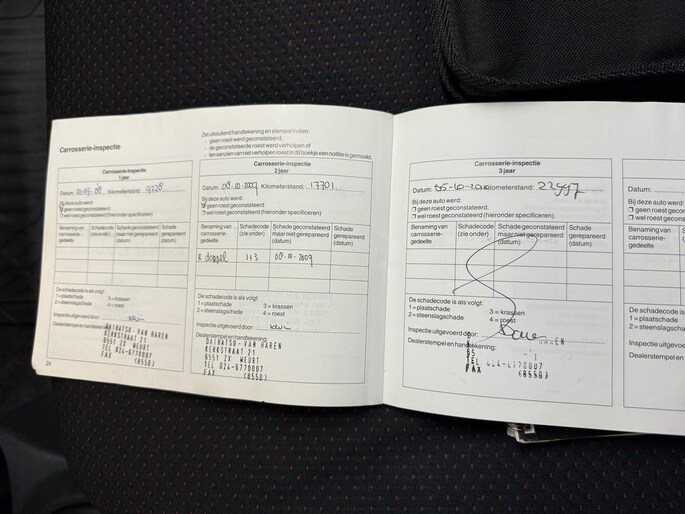 Carrosserie-inspectie
Zet uitsluitend handtekening en stempel indien:
- geen roest werd geconstateerd,
- de geconstateerde roest werd verholpen of
- ten aanzien van niet verholpen roest in dit boekje een notitie is gemaakt.
Carrosserie-inspectie
1 jaar
Datum: Kilometerstand: 9228
Bij deze auto werd:
geen roest geconstateerd
wel roest geconstateerd (hieronder specificeren).
Benaming van carrosserie-gedeelte
Schadecode (zie onder)
Schade geconstateerd maar niet gerepareerd (datum)
Schade gerepareerd (datum)
De schadecode is als volgt:
1 = plaatschade 3 = krassen
2 = steenslagschade 4 = roest
Inspectie uitgevoerd door:
Dealerstempel en handtekening:
DAIHATSU-VAN HAREN
KERKSTRAAT 21
6551 ZX WEURT
TEL 024-6770007
FAX (8550)
24
Carrosserie-inspectie
2 jaar
Datum: 08-10-2009 Kilometerstand: 17701
Bij deze auto werd:
geen roest geconstateerd
wel roest geconstateerd (hieronder specificeren).
Benaming van carrosserie-gedeelte
Schadecode (zie onder)
Schade geconstateerd maar niet gerepareerd (datum)
Schade gerepareerd (datum)
1+3 08-10-2009
De schadecode is als volgt:
1 = plaatschade 3 = krassen
2 = steenslagschade 4 = roest
Inspectie uitgevoerd door:
Dealerstempel en handtekening:
DAIHATSU-VAN HAREN
KERKSTRAAT 21
6551 ZX WEURT
TEL 024-6770007
FAX (8550)
Carrosserie-inspectie
3 jaar
Datum: 05-10-2010 Kilometerstand: 22997
Bij deze auto werd:
geen roest geconstateerd
wel roest geconstateerd (hieronder specificeren).
Benaming van carrosserie-gedeelte
Schadecode (zie onder)
Schade geconstateerd maar niet gerepareerd (datum)
Schade gerepareerd (datum)
De schadecode is als volgt:
1 = plaatschade 3 = krassen
2 = steenslagschade 4 = roest
Inspectie uitgevoerd door:
Dealerstempel en handtekening:
TEL 024-6770007
FAX (8550)
Datum:
Bij deze auto werd:
geen roest geco
wel roest gecon
Benaming van carrosserie-gedeelte
De schadecode is
1 = plaatschade
2 = steenslagscha
Inspectie uitgevoe
Dealerstempel en